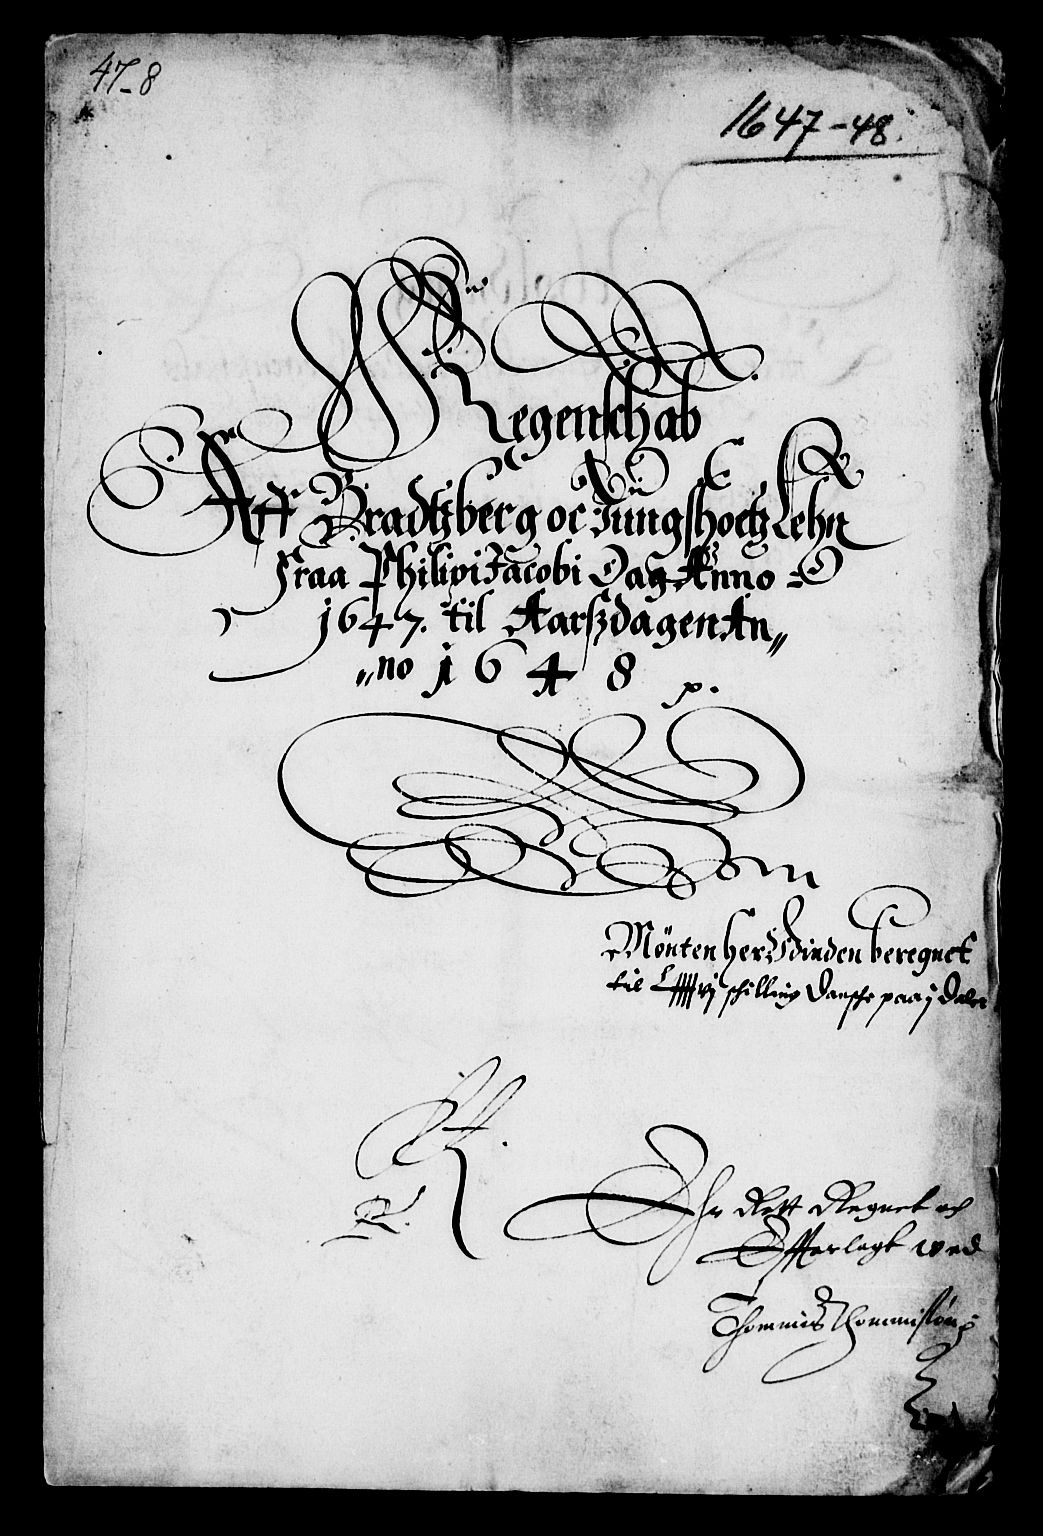 47-8
1647-48.
Regenschab
Aff Bradtzberg oc Jungshoctz Lehn
Fraa Philipi Jacobi Dag Anno
1647. til Aarszdagen An„
„no 1648
Mønten her Vdinden beregnet
til Lxxxxvj schilling Dansche paa j Daler
R.
Ehr Rett Regnet och
Offterlagt wed
Thommis Thommissøn